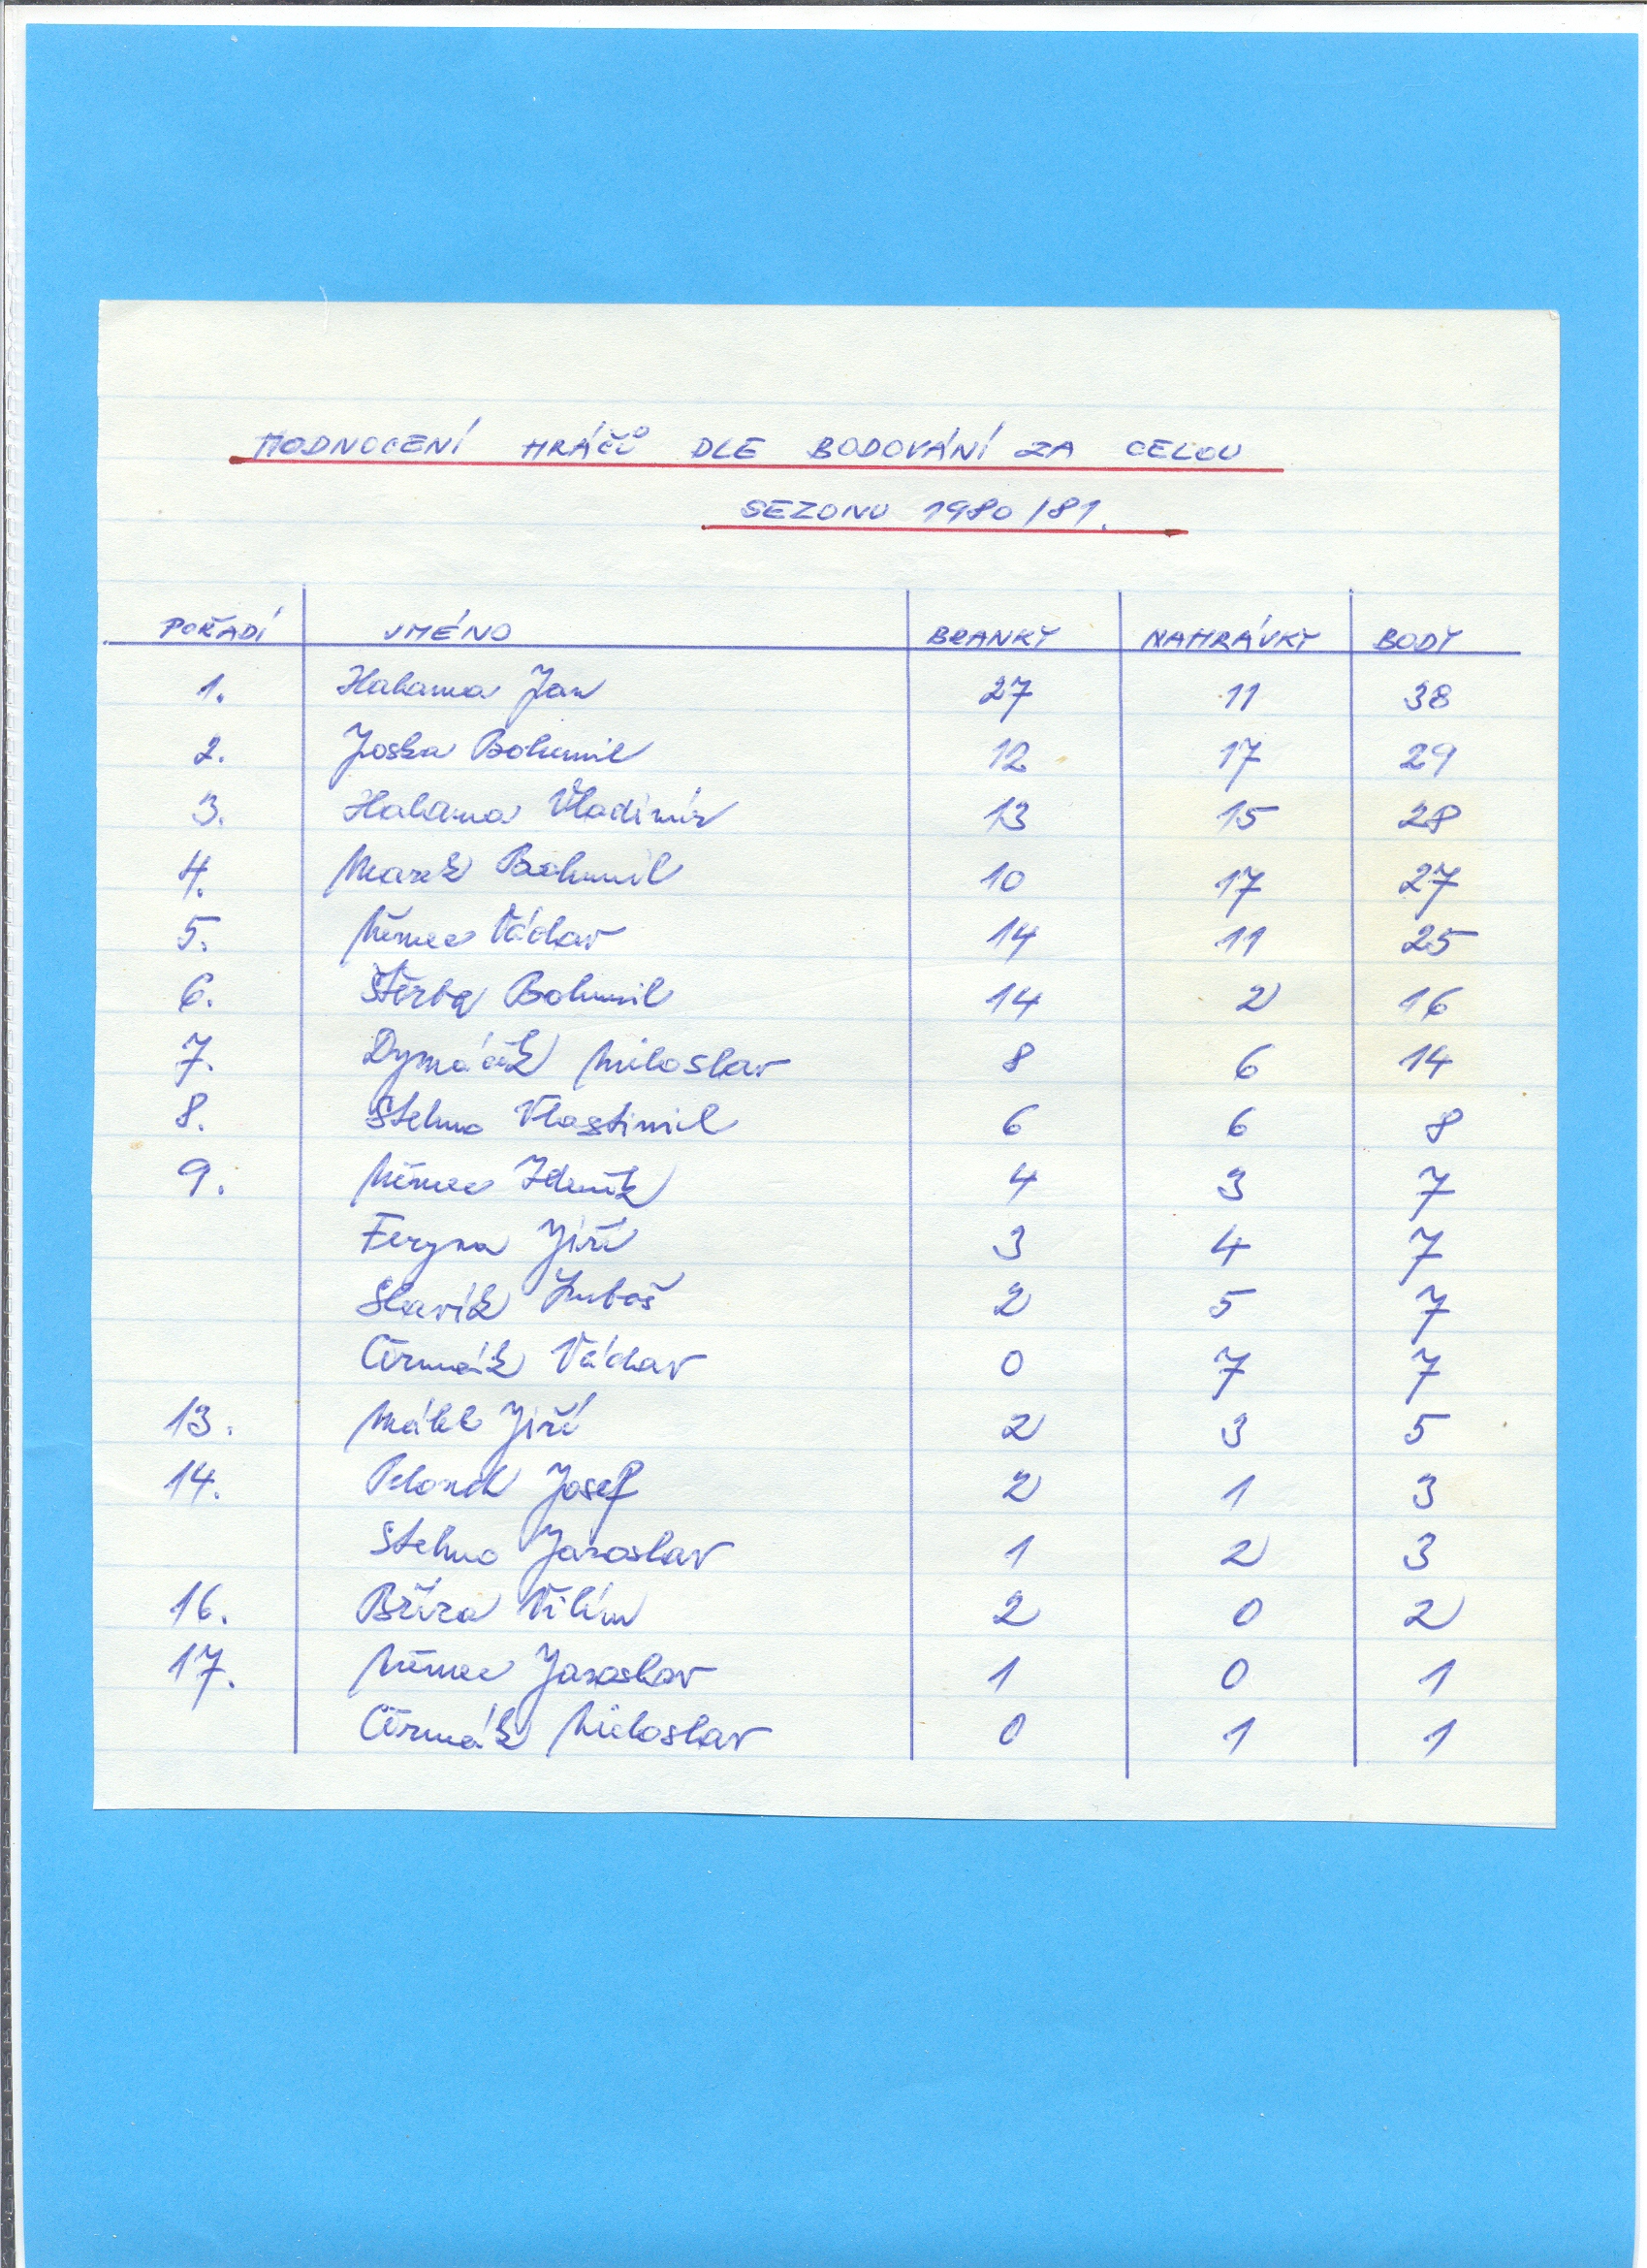 HODNOCENÍ HRÁČŮ DLE BODOVÁNÍ ZA CELOU
SEZONU 1980/81.
POŘADÍ JMÉNO BRANKY NAHRÁVKY BODY
1. Halama Jan 27 11 38
2. Joska Bohumil 12 17 29
3. Halama Vladimír 13 15 28
4. Marek Bohumil 10 17 27
5. Němec Václav 14 11 25
6. Štěrba Bohumil 14 2 16
7. Dymáček Miloslav 8 6 14
8. Stehno Vlastimil 6 6 8
9. Němec Zdeněk 4 3 7
Feryna Jiří 3 4 7
Slavík Luboš 2 5 7
Čermák Václav 0 7 7
13. Málek Jiří 2 3 5
14. Josef 2 1 3
Stehno Jaroslav 1 2 3
16. Bříza Vilém 2 0 2
17. Němec Jaroslav 1 0 1
Čermák Miloslav 0 1 1